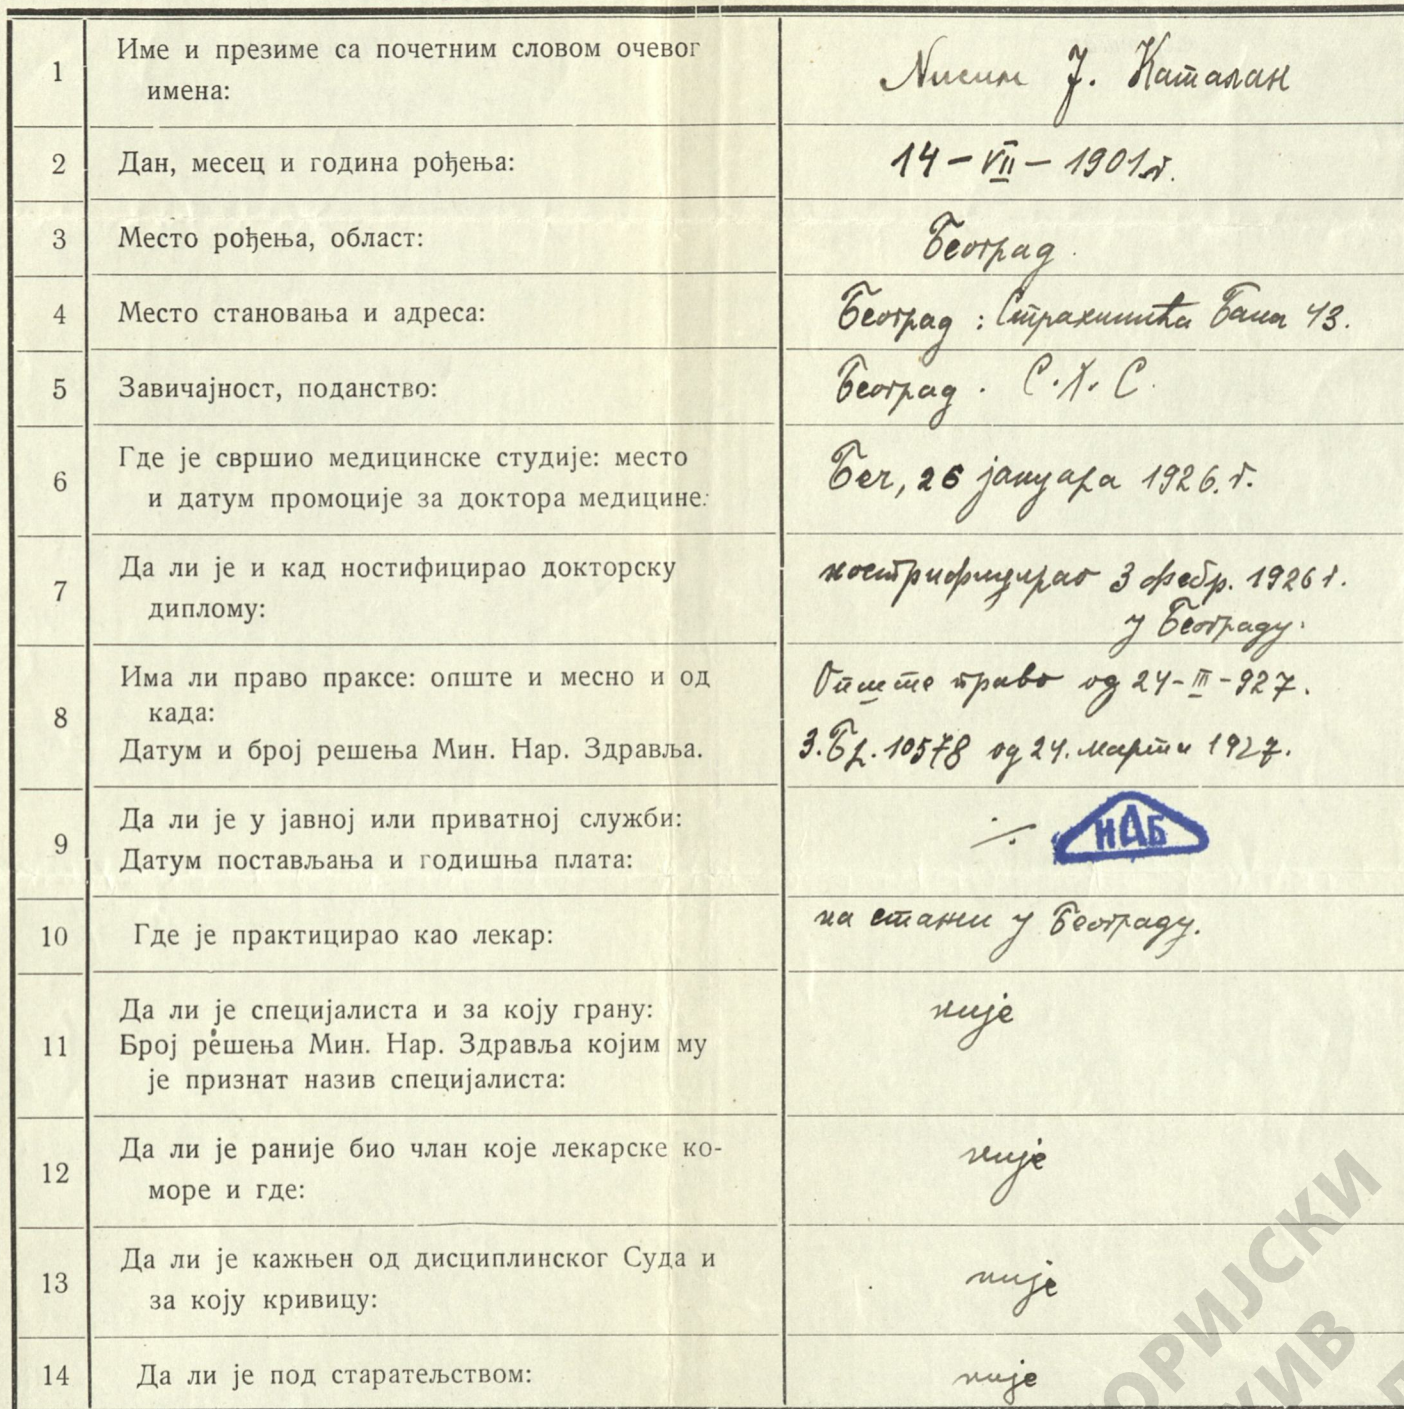 1
Име и презиме са почетним словом очевог
имена:
Нисим Ј. Каталан
2
Дан, месец и година рођења:
14 – VII – 1901 г.
3
Место рођења, област:
Београд.
4
Место становања и адреса:
Београд : Страхинића Бана 43.
5
Завичајност, поданство:
Београд . С. Х. С.
6
Где је свршио медицинске студије: место
и датум промоције за доктора медицине:
Беч, 26 јануара 1926. г.
7
Да ли је и кад ностифицирао докторску
диплому:
нострифицирао 3 фебр. 1926 г.
у Београду.
8
Има ли право праксе: опште и месно и од
када:
Датум и број решења Мин. Нар. Здравља.
Опште право од 24-III-927.
З. Бр. 10578 од 24. марта 1927.
9
Да ли је у јавној или приватној служби:
Датум постављања и годишња плата:
./.
ИАБ
10
Где је практицирао као лекар:
на стажи у Београду.
11
Да ли је специјалиста и за коју грану:
Број решења Мин. Нар. Здравља којим му
је признат назив специјалиста:
није
12
Да ли је раније био члан које лекарске ко-
море и где:
није
13
Да ли је кажњен од дисциплинског Суда и
за коју кривицу:
није
14
Да ли је под старатељством:
није